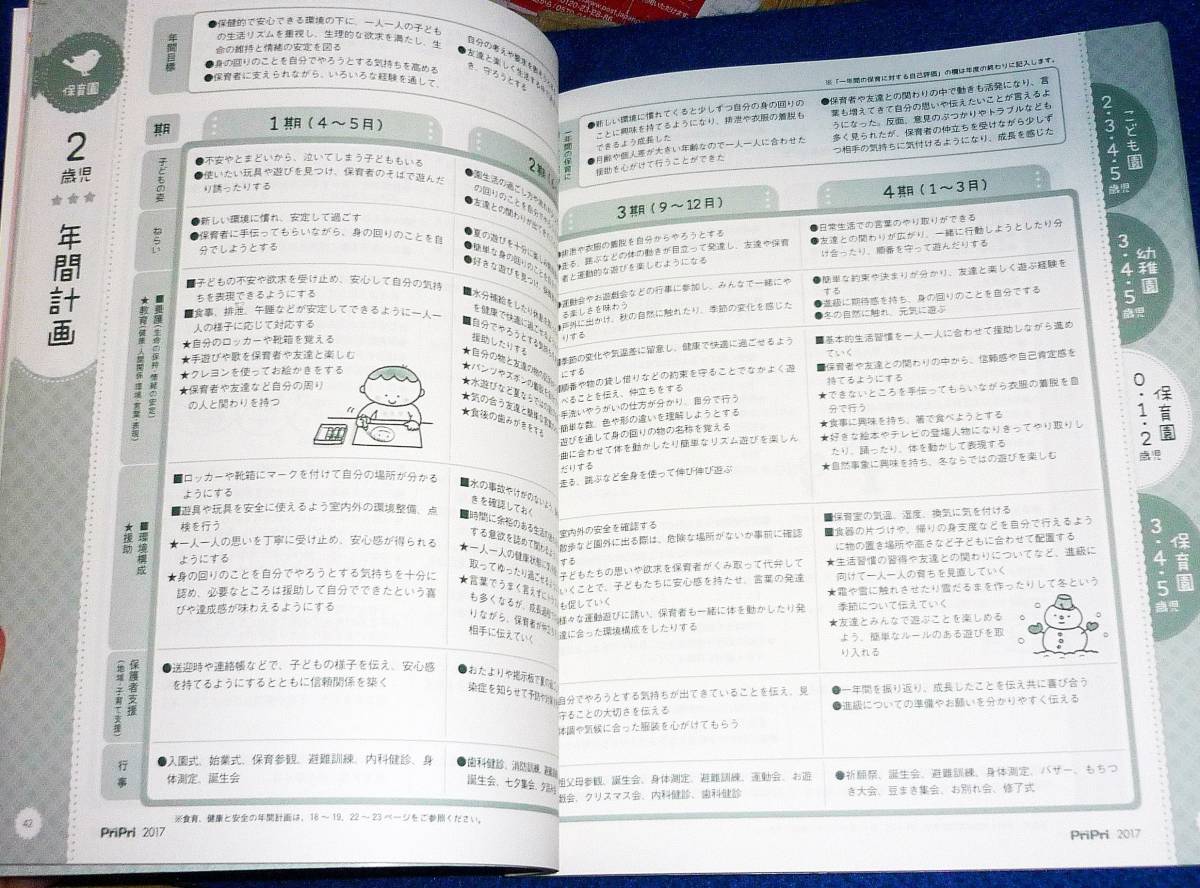 保育園
2
歳児
★★★
年間計画
年間目標
●保健的で安心できる環境の下に、一人一人の子ども
の生活リズムを重視し、生理的な欲求を満たし、生
命の維持と情緒の安定を図る
●身の回りのことを自分でやろうとする気持ちを高める
●保育者に支えられながら、いろいろな経験を通して、
自分の考えや
●友達と楽しく生活する
き、守ろうとする
期
1期(4〜5月)
子どもの姿
●不安やとまどいから、泣いてしまう子どももいる
●使いたい玩具や遊びを見つけ、保育者のそばで遊んだ
り誘ったりする
●園生活の過ごし方や
の回りのことを自分で
●友達との関わりが出てき
ねらい
●新しい環境に慣れ、安定して過ごす
●保育者に手伝ってもらいながら、身の回りのことを自
分でしようとする
●夏の遊びを十分に楽しみ
●簡単な身の回りのことを
●好きな遊びを見つけ、
■養護(生命の保持・情緒の安定)
★教育(健康・人間関係・環境・言葉・表現)
■子どもの不安や欲求を受け止め、安心して自分の気持
ちを表現できるようにする
■食事、排泄、午睡などが安定してできるように一人一
人の様子に応じて対応する
★自分のロッカーや靴箱を覚える
★手遊びや歌を保育者や友達と楽しむ
★クレヨンを使ってお絵かきをする
★保育者や友達など自分の周り
の人と関わりを持つ
■水分補給をしたり休息を
を健康で快適に過ごせるよう
■自分でやろうとする気持ち
★自分の物と友達の物の
★パンツやズボンの着脱を
★水遊びなど夏ならではの
★気の合う友達と簡単な言葉の
★食後の歯みがきをする
■環境構成
★援助
■ロッカーや靴箱にマークを付けて自分の場所が分かる
ようにする
■遊具や玩具を安全に使えるよう室内外の環境整備、点
検を行う
★一人一人の思いを丁寧に受け止め、安心感が得られる
ようにする
★身の回りのことを自分でやろうとする気持ちを十分に
認め、必要なところは援助して自分でできたという喜
びや達成感が味わえるようにする
■水の事故やけがのないよう、
きを確認しておく
■時間に余裕のある生活の
する意欲を認めて関わる
★一人一人の健康状態に
取ってゆったり過ごせるよう
★言葉でうまく言えずに
も多くなるが、成長過程
りながら、保育者が仲立ち
相手に伝えていく
保護者支援
(地域・子育て支援)
●送迎時や連絡帳などで、子どもの様子を伝え、安心感
を持てるようにするとともに信頼関係を築く
●おたよりや掲示板で夏の
染症を知らせて予防や対策
行事
●入園式、始業式、保育参観、避難訓練、内科健診、身
体測定、誕生会
●歯科健診、消防訓練、避難
誕生会、七夕集会、夕涼み
※食育、健康と安全の年間計画は、18〜19、22〜23ページをご参照ください。
42
PriPri 2017
※「一年間の保育に対する自己評価」の欄は年度の終わりに記入します。
一年間の保育に
●新しい環境に慣れてくると少しずつ自分の身の回りの
ことに興味を持てるようになり、排泄や衣服の着脱も
できるよう成長した
●月齢や個人差が大きい年齢なので一人一人に合わせた
援助を心がけて行うことができた
●保育者や友達との関わりの中で動きも活発になり、言
葉も増えてきて自分の思いや伝えたいことが言えるよ
うになった。反面、意見のぶつかりやトラブルなども
多く見られたが、保育者の仲立ちを受けながら少しず
つ相手の気持ちに気付けるようになり、成長を感じた
3期(9〜12月)
4期(1〜3月)
排泄や衣服の着脱を自分からやろうとする
走る、跳ぶなどの体の動きが目立って発達し、友達や保育
者と運動的な遊びを楽しむようになる
●日常生活での言葉のやり取りができる
●友達との関わりが広がり、一緒に行動しようとしたり分
け合ったり、順番を守って遊んだりする
運動会やお遊戯会などの行事に参加し、みんなで一緒にや
る楽しさを味わう
戸外に出かけ、秋の自然に触れたり、季節の変化を感じた
りする
●簡単な約束や決まりが分かり、友達と楽しく遊ぶ経験を
する
●進級に期待感を持ち、身の回りのことを自分でする
●冬の自然に触れ、元気に遊ぶ
季節の変化や気温差に留意し、健康で快適に過ごせるよう
にする
順番や物の貸し借りなどの約束を守ることでなかよく遊
べることを伝え、仲立ちをする
手洗いやうがいの仕方が分かり、自分で行う
簡単な数、色や形の違いを理解しようとする
遊びを通して身の回りの物の名称を覚える
曲に合わせて体を動かしたり簡単なリズム遊びを楽しん
だりする
走る、跳ぶなど全身を使って伸び伸び遊ぶ
■基本的生活習慣を一人一人に合わせて援助しながら進め
ていく
■保育者や友達との関わりの中から、信頼感や自己肯定感を
持てるようにする
★できないところを手伝ってもらいながら衣服の着脱を自
分で行う
★食事に興味を持ち、箸で食べようとする
★好きな絵本やテレビの登場人物になりきってやり取りし
たり、踊ったり、体を動かして表現する
★自然事象に興味を持ち、冬ならではの遊びを楽しむ
室内外の安全を確認する
散歩など園外に出る際は、危険な場所がないか事前に確認
子どもたちの思いや欲求を保育者がくみ取って代弁して
いくことで、子どもたちに安心感を持たせ、言葉の発達
も促していく
様々な運動遊びに誘い、保育者も一緒に体を動かしたり発
達に合った環境構成をしたりする
■保育室の気温、湿度、換気に気を付ける
■食器の片づけや、帰りの身支度などを自分で行えるよう
に物の置き場所や高さなど子どもに合わせて配置する
★生活習慣の習得や友達との関わりについてなど、進級に
向けて一人一人の育ちを見直していく
★霜や雪に触れさせたり雪だるまを作ったりして冬という
季節について伝えていく
★友達とみんなで遊ぶことを楽しめる
よう、簡単なルールのある遊びを取
り入れる
自分でやろうとする気持ちが出てきていることを伝え、見
守ることの大切さを伝える
体調や気候に合った服装を心がけてもらう
●一年間を振り返り、成長したことを伝え共に喜び合う
●進級についての準備やお願いを分かりやすく伝える
祖父母参観、誕生会、身体測定、避難訓練、運動会、お遊
戯会、クリスマス会、内科健診、歯科健診
●祈願祭、誕生会、避難訓練、身体測定、バザー、もちつ
き大会、豆まき集会、お別れ会、修了式
PriPri 2017
こども園
2・3・4・5
歳児
幼稚園
3・4・5
歳児
保育園
0・1・2
歳児
保育園
3・4・5
歳児